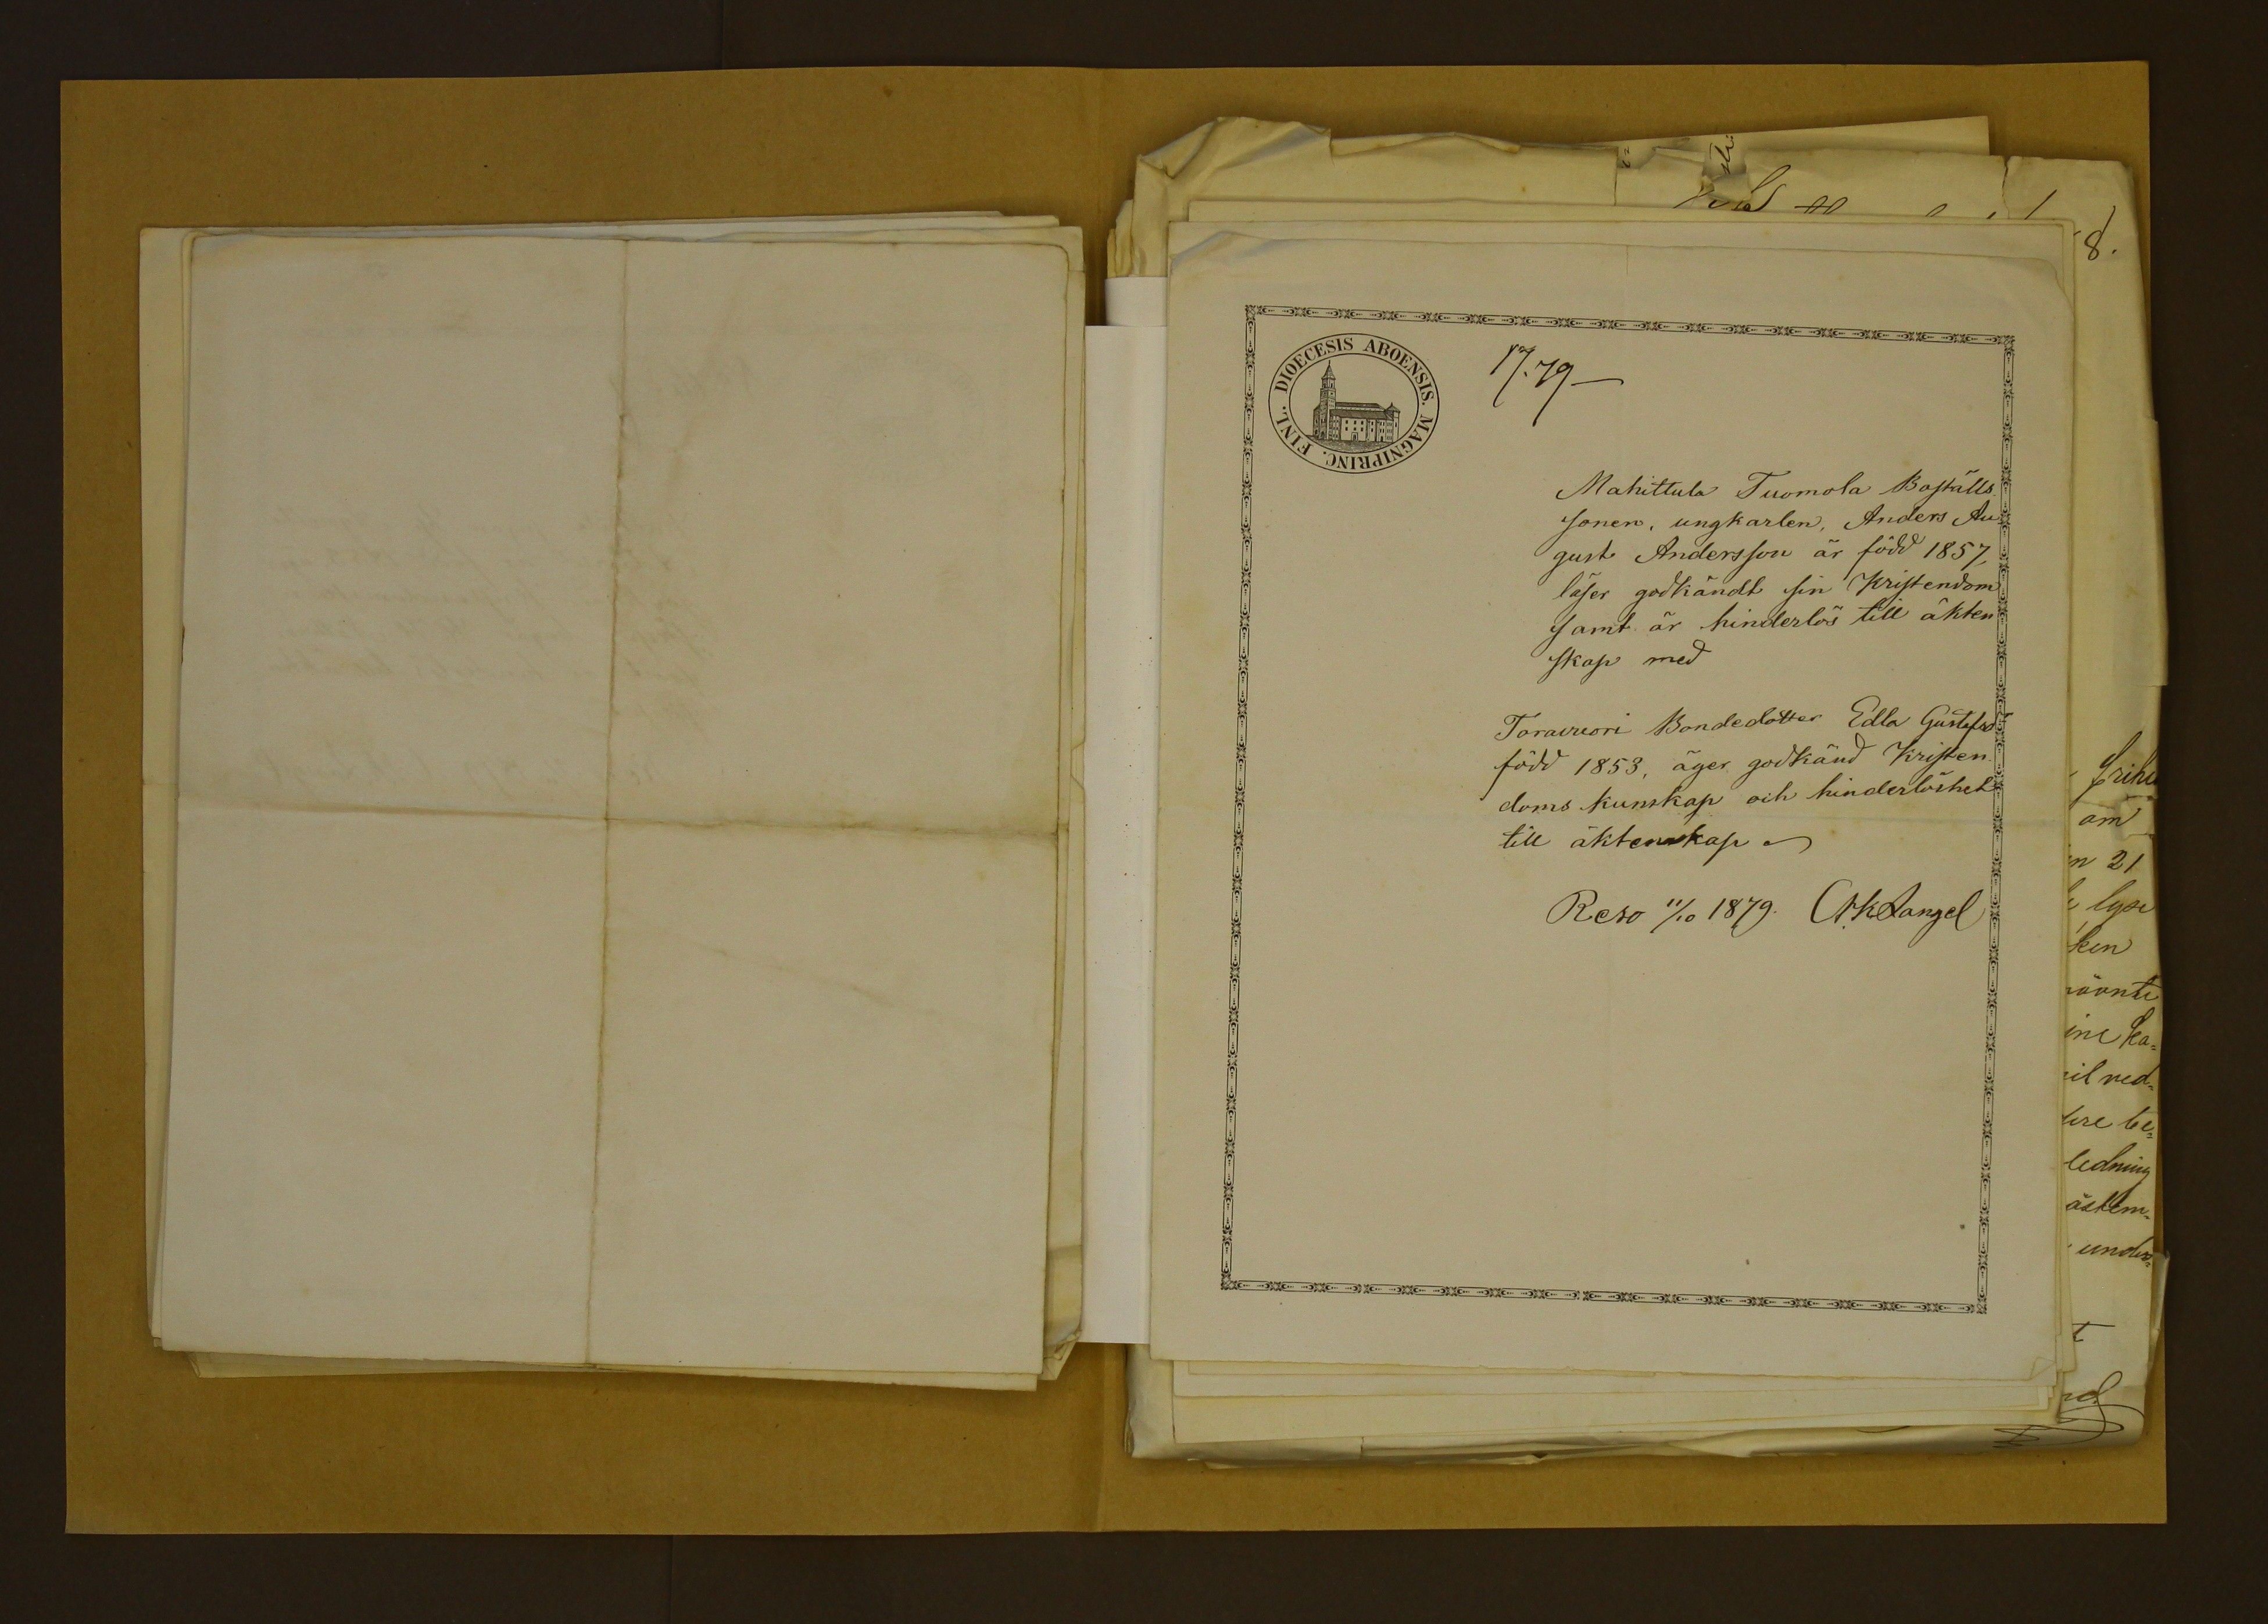 DIOECESIS ABOENSIS. MAGNIPRINC. FINL.
17.79
Mahittula Tuomola Boställs
sonen, ungkarlen, Anders Au
gust Andersson är född 1857,
läser godkändt sin Kristendom
samt är hinderlös till äkten
skap med
Bondedotter Edla Gustafsd
född 1853, äger godkänd Kristen
doms kunskap och hinderlöshet
till äktenskap
Reso 11/10 1879.
8.
am
n 21
lyse
ken
ine ka=
il ned=
ledning
ästem=
under=